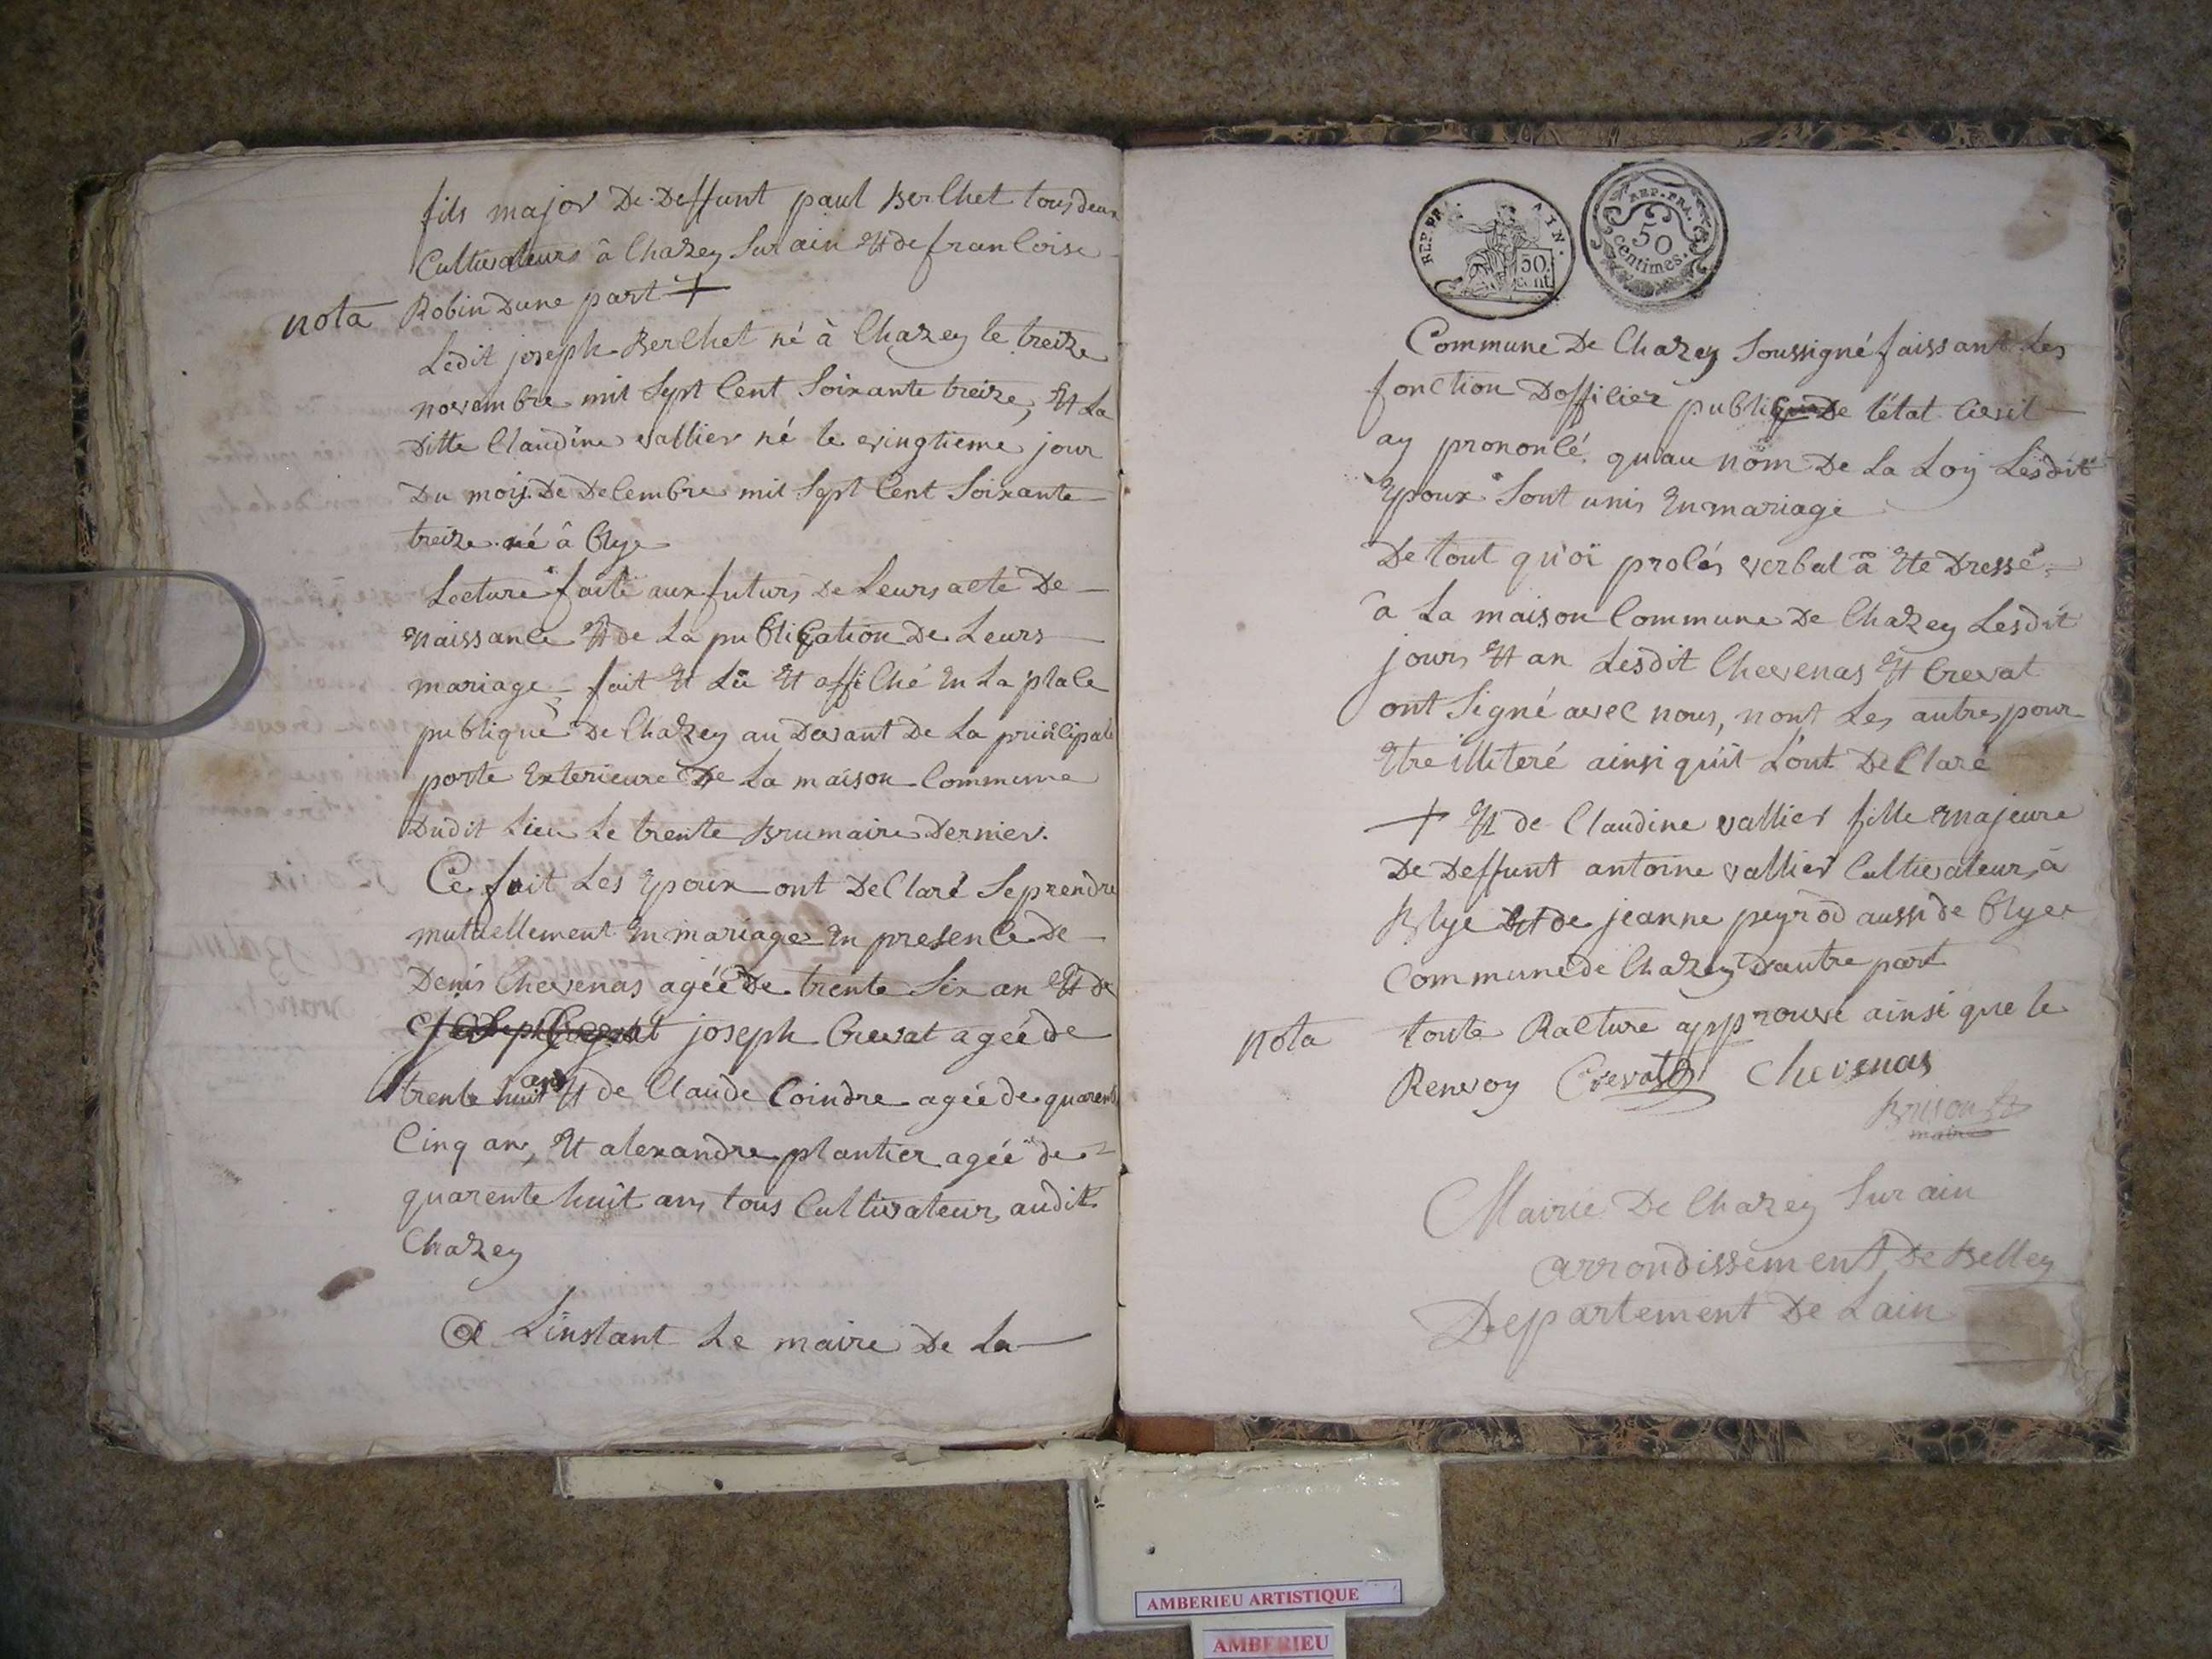 fils major De Deffunt paul Berchet tous deux
Cultivateurs â Chazey Sur ain Et de francoise
nota Robin Dune part +
Ledit joseph Berchet né à Chazey le treize
novembre mil Sept Cent Soixante treize, Et La
Ditte Claudine vallier né le vingtieme jour
Du mois De Decembre mil Sept Cent Soixante
treize né â Blye
Lecture faite aux futurs De Leurs acte De
Naissance Et de La publication De Leurs
mariage fait Et Lu Et affiché En La place
publique De Chazey au Devant De La principale
porte Exterieure De La maison Commune
Dudit Lieu Le trente Brumaire Dernier.
Ce fait Les Epoux ont DeClaré Se prendre
mutuellement En mariage En presence De
Denis Chevenas agée De trente Six an Et de
joseph Crevat agée de
trente huit ans Et de Claude Coindre agée de quarente
Cinq an, Et alexandre plantier agée de
quarente huit ans tous Cultivateur, audit
Chazey
a Linstant Le maire De La
REP. FRA. AIN.
50 cent.
REP. FRA.
50
centimes.
Commune De Chazey Soussigné faissant Les
fonction Dofficier public De létat Civil
ay prononcé quau nom De La Loy Lesdit
Epoux Sont unis En mariage
De tout quoi procés verbal â Ete Dressé
â La maison Commune De Chazey Lesdit
jours Et an Lesdit Chevenas Et Crevat
ont Signé avec nous, nont Les autres pour
Etre illiteré ainsi quil Lont DeClaré
+ Et de Claudine vallier fille majeure
De Deffunt antoine vallier Cultivateur à
Blye Et de jeanne peyrod aussi de Blye
Commune de Chazey Dautre part
nota toute Racture approuvé ainsi que le
Renvoy Crevat Chevenas
maire
Mairie De Chazey Sur ain
arrondissement De Belley
Departement De Lain
AMBERIEU ARTISTIQUE
AMBERIEU